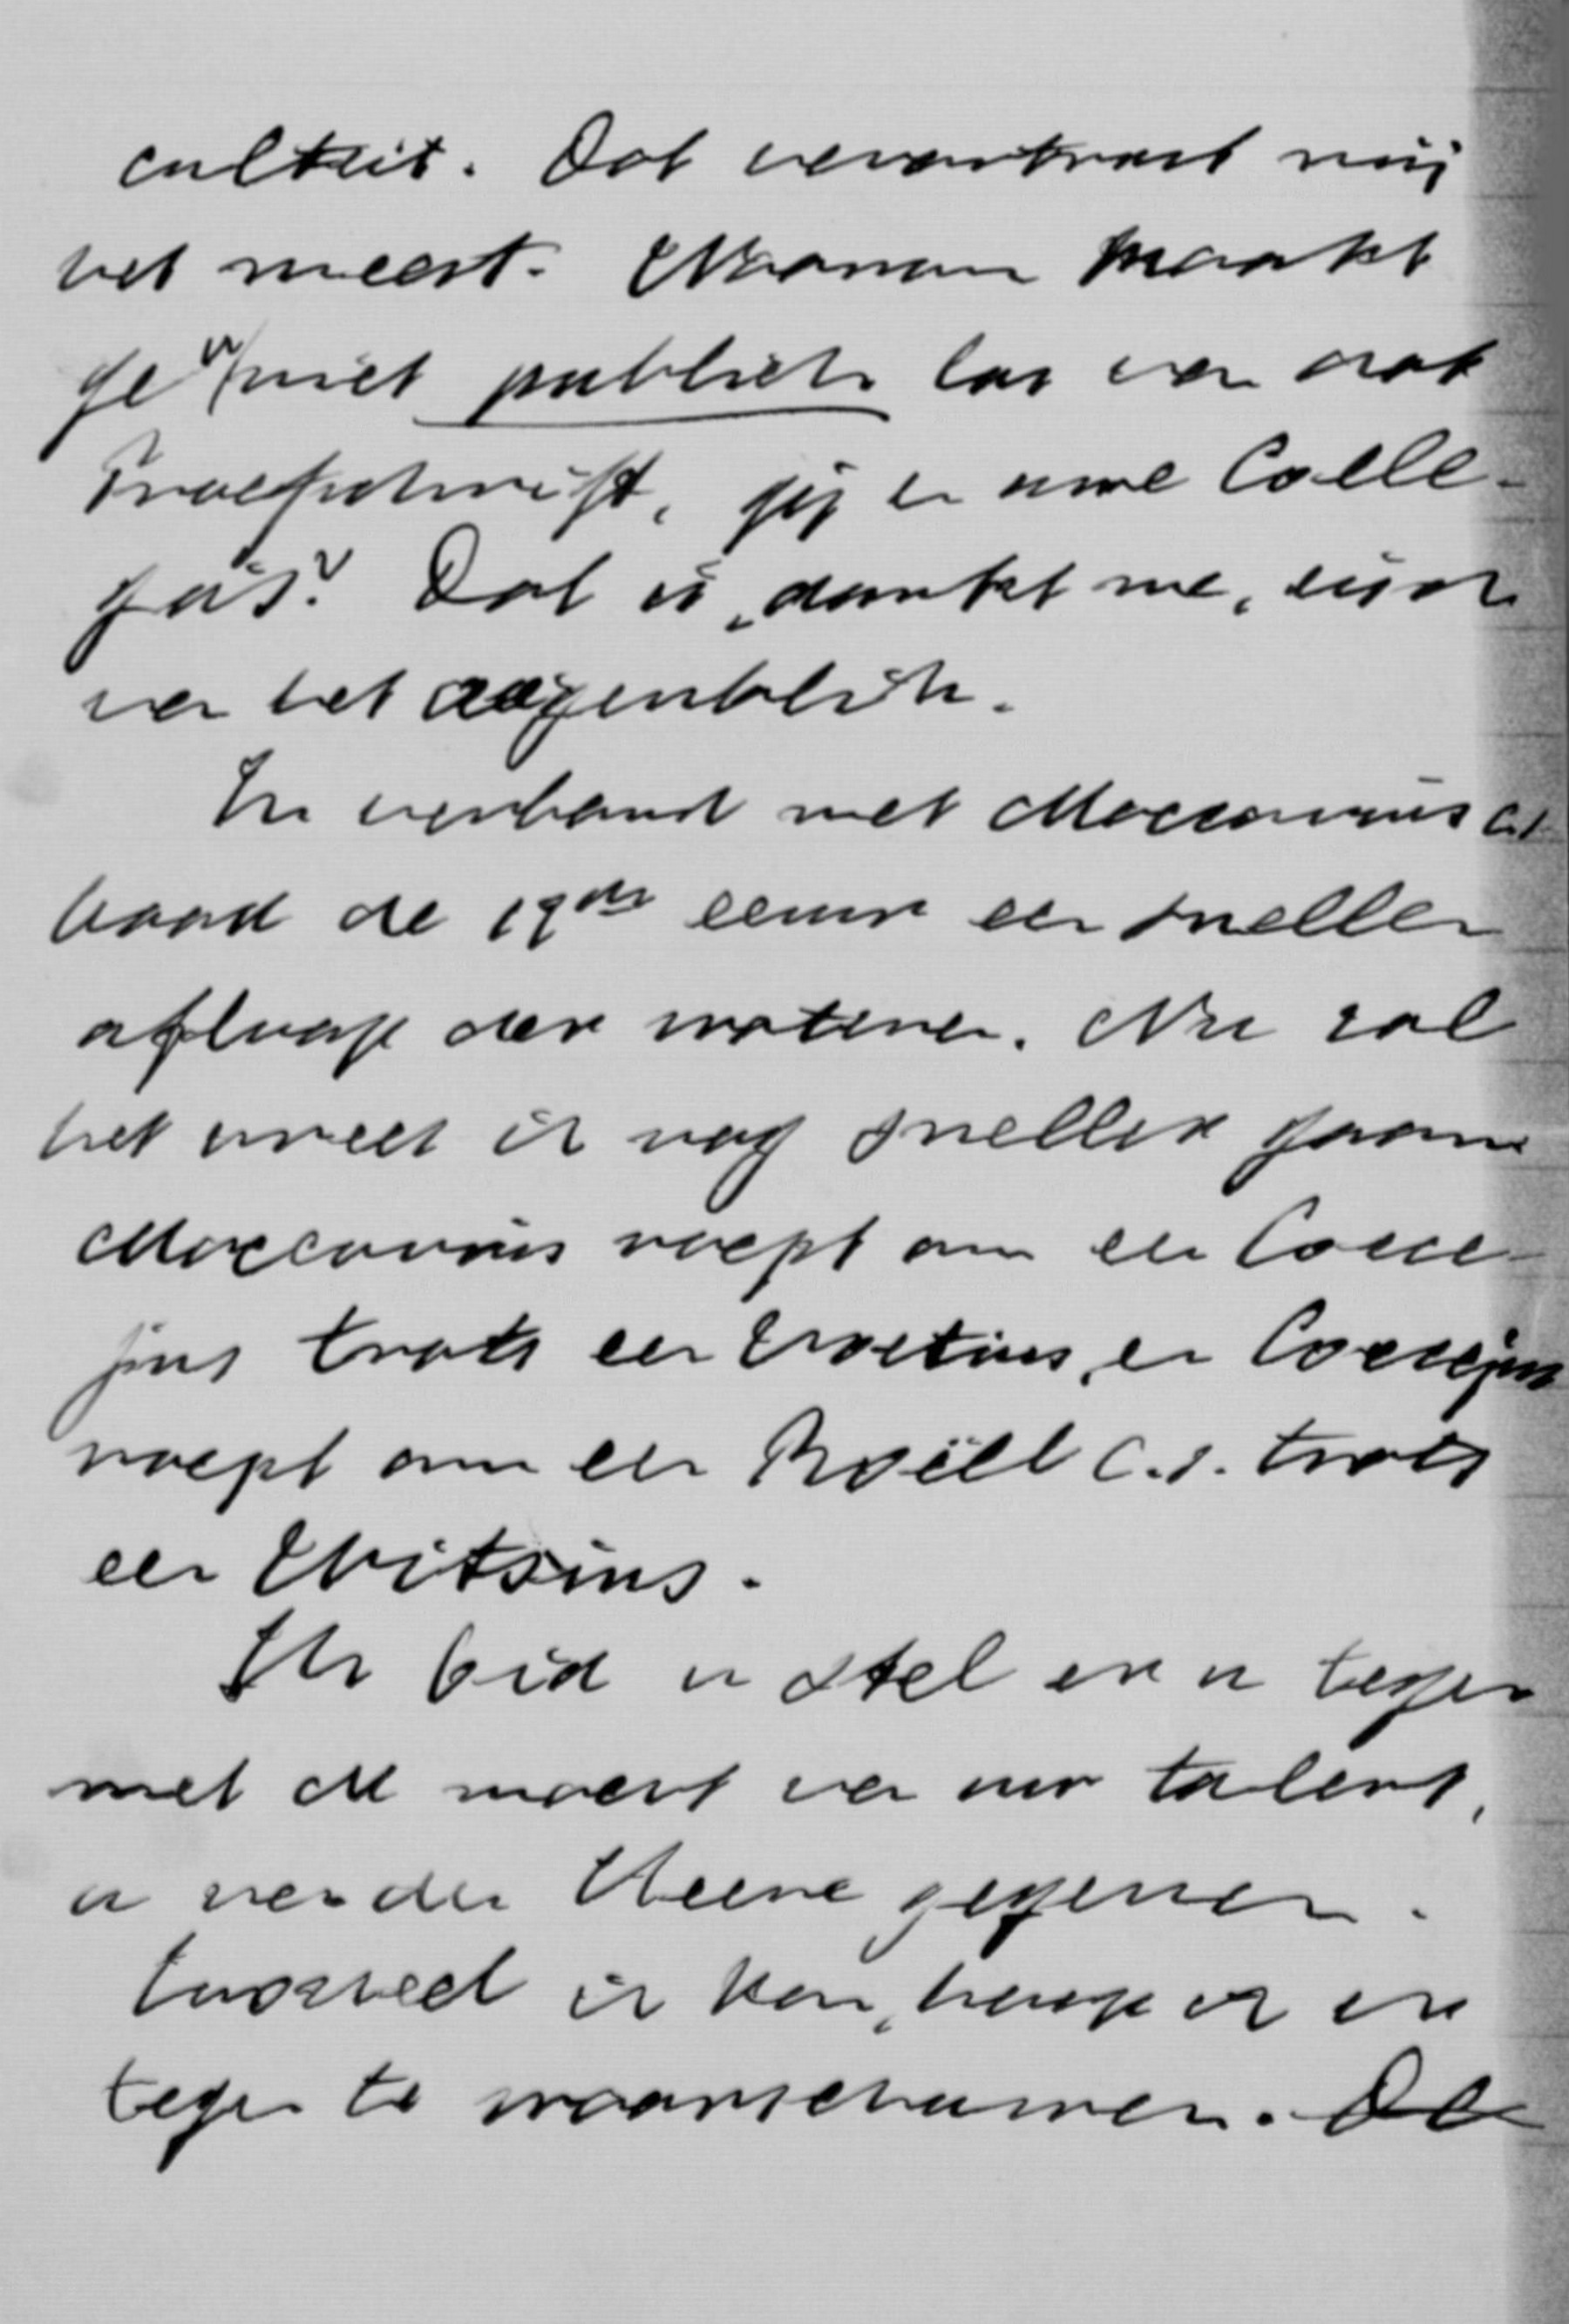 culteit. Dat verontrust mij
het meest. Waarom maakt
ge u niet publiek los van dat
Proefschrift, gij en uwe Colle-
ga's? Dat is, dunkt me, eisch
van het oogenblik.
In verband met Maccovius c.s.
bood de 17de eeuw een snellen
afloop der wateren. Nu zal
het vrees ik nog sneller gaan.
Maccovius roept om een Cocce-
jus trots een Voetius, en Coccejus
roept om een Roëll c.s. trots
een Witsius.
Ik bid u stel er u tegen
met de macht van uw talent,
u van den Heere gegeven.
Hoeveel ik kan, hoop ik er
tegen te waarschuwen. De